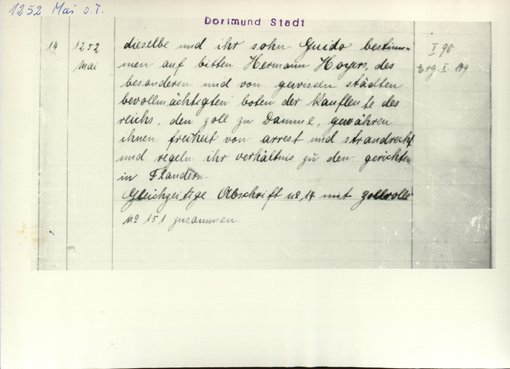 1252 Mai o.T.
Dortmund Stadt
14 1252 dieselbe und ihr sohn Guido bestim- I 98
Mai men auf bitten Hermann Hoyers, des Erg. I
besonderen und von gewissen städten
bevollmächtigten boten der kaufleute des
reichs, den zoll zu Damme, gewähren
ihnen freiheit von arrest und strandrecht
und regeln ihr verhältnis zu den gerichten
in Flandern.
Gleichzeitige Abschrift no 14 mit zollrolle
no 151 zusammen.